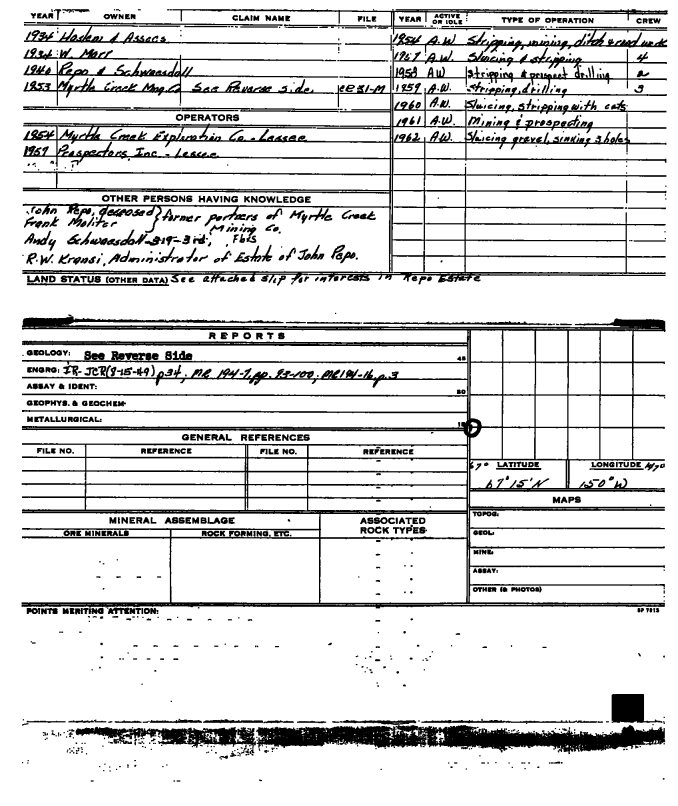 YEAR OWNER CLAIM NAME FILE
1934 Hosken & Assocs
1934 W. Marr
1940 Repo & Schwaesdall
1953 Myrtle Creek Mng. Co See Reverse side.
OPERATORS
1954 Myrtle Creek Exploration Co. - Lessee
1957 Prospectors Inc. - Lessee
OTHER PERSONS HAVING KNOWLEDGE
John Repo, deceased } former partners of Myrtle Creek
Frank Moliter Mining Co.
Andy Schwaesdall - 519-3rd, Fbks
R.W. Kransi, Administrator of Estate of John Repo.
LAND STATUS (OTHER DATA) See attached slip for interests in Repo Estate
YEAR ACTIVE OR IDLE TYPE OF OPERATION CREW
1954 A.W Stripping, mining, ditch & road work
1957 A.W. Sluicing & stripping 4
1958 AW stripping & prospect drilling 2
1959 A.W. stripping, drilling 3
1960 A.W. Sluicing, stripping with cats
1961 A.W. Mining & prospecting
1962 A.W. Sluicing gravel, sinking 3 holes
REPORTS
GEOLOGY: See Reverse Side 45
ENGRG: IR-JCR(8-15-49) p34; MR 194-7, pp. 93-100; MR 194-16, p.3
ASSAY & IDENT: 30
GEOPHYS. & GEOCHEM-
METALLURGICAL: 15
GENERAL REFERENCES
FILE NO. REFERENCE FILE NO. REFERENCE
67° LATITUDE LONGITUDE
67° 15' N 150° W
MAPS
TOPOG:
GEOL:
MINE:
ASSAY:
OTHER (& PHOTOS)
MINERAL ASSEMBLAGE ASSOCIATED ROCK TYPES
ORE MINERALS ROCK FORMING, ETC.
POINTS MERITING ATTENTION: